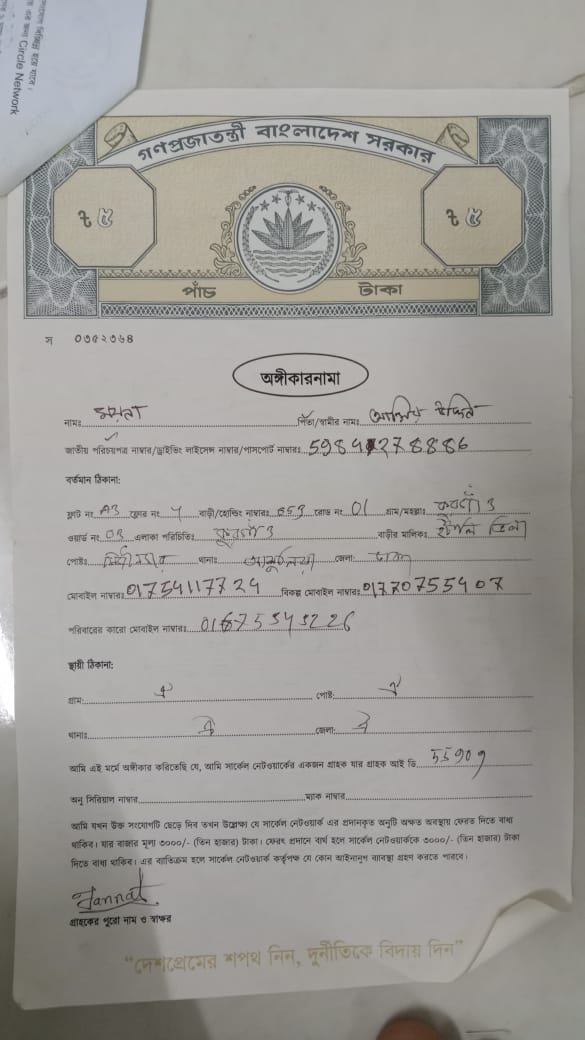 Circle Network
গণপ্রজাতন্ত্রী বাংলাদেশ সরকার
৳ ৫
৳ ৫
পাঁচ টাকা
স ০৩৫২৩৬৪
অঙ্গীকারনামা
নামঃ ময়না পিতা/স্বামীর নামঃ
জাতীয় পরিচয়পত্র নাম্বার/ড্রাইভিং লাইসেন্স নাম্বার/পাসপোর্ট নাম্বারঃ
বর্তমান ঠিকানা:
ফ্লাট নং A3 ফ্লোর নং বাড়ী/হোল্ডিং নাম্বারঃ 653 রোড নং 01 গ্রাম/মহল্লাঃ
ওয়ার্ড নং 03 এলাকা পরিচিতিঃ বাড়ীর মালিকঃ ভিলা
পোষ্টঃ থানাঃ জেলাঃ ঢাকা
মোবাইল নাম্বারঃ 01754117724 বিকল্প মোবাইল নাম্বারঃ 01770755407
পরিবারের কারো মোবাইল নাম্বারঃ
স্থায়ী ঠিকানা:
গ্রাম: ঐ পোষ্ট: ঐ
থানাঃ ঐ জেলা: ঐ
আমি এই মর্মে অঙ্গীকার করিতেছি যে, আমি সার্কেল নেটওয়ার্কের একজন গ্রাহক যার গ্রাহক আই ডি
অনু সিরিয়াল নাম্বার ম্যাক নাম্বার
আমি যখন উক্ত সংযোগটি ছেড়ে দিব তখন উল্লেক্ষ্য যে সার্কেল নেটওয়ার্ক এর প্রদানকৃত অনুটি অক্ষত অবস্থায় ফেরত দিতে বাধ্য
থাকিব। যার বাজার মূল্য ৩০০০/- (তিন হাজার) টাকা। ফেরৎ প্রদানে ব্যর্থ হলে সার্কেল নেটওয়ার্ককে ৩০০০/- (তিন হাজার) টাকা
দিতে বাধ্য থাকিব। এর ব্যতিক্রম হলে সার্কেল নেটওয়ার্ক কর্তৃপক্ষ যে কোন আইনানুগ ব্যবস্থা গ্রহণ করতে পারবে।
Jannat
গ্রাহকের পুরো নাম ও স্বাক্ষর
“দেশপ্রেমের শপথ নিন, দুর্নীতিকে বিদায় দিন”